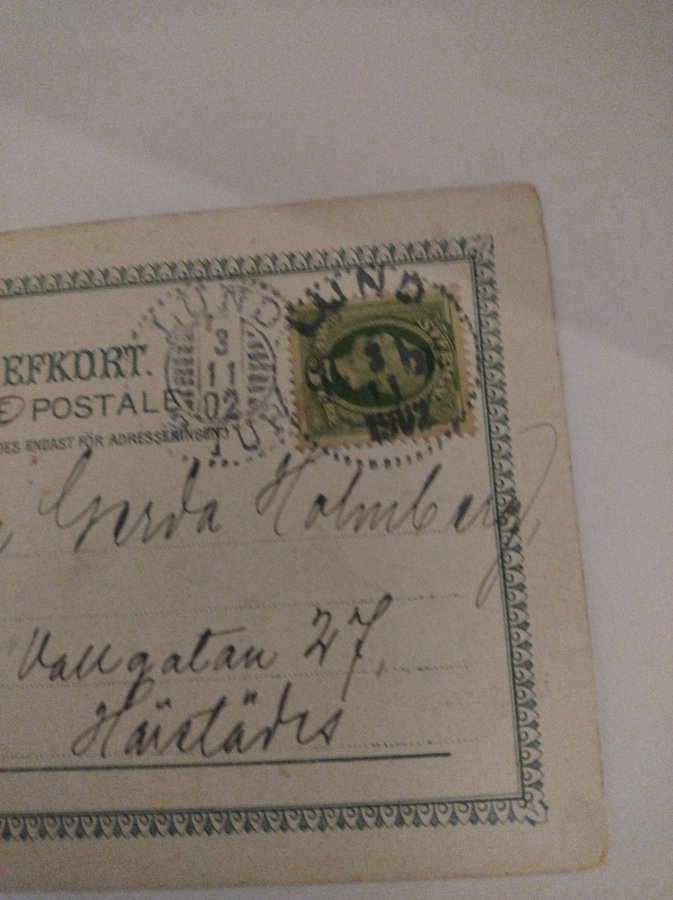 EFKORT.
POSTALE
DES ENDAST FÖR ADRESSERINGEN.)
LUND
3
11
02
LUND
3
11
1902
Gerda Holmberg
Vallgatan 27,
Härstädes